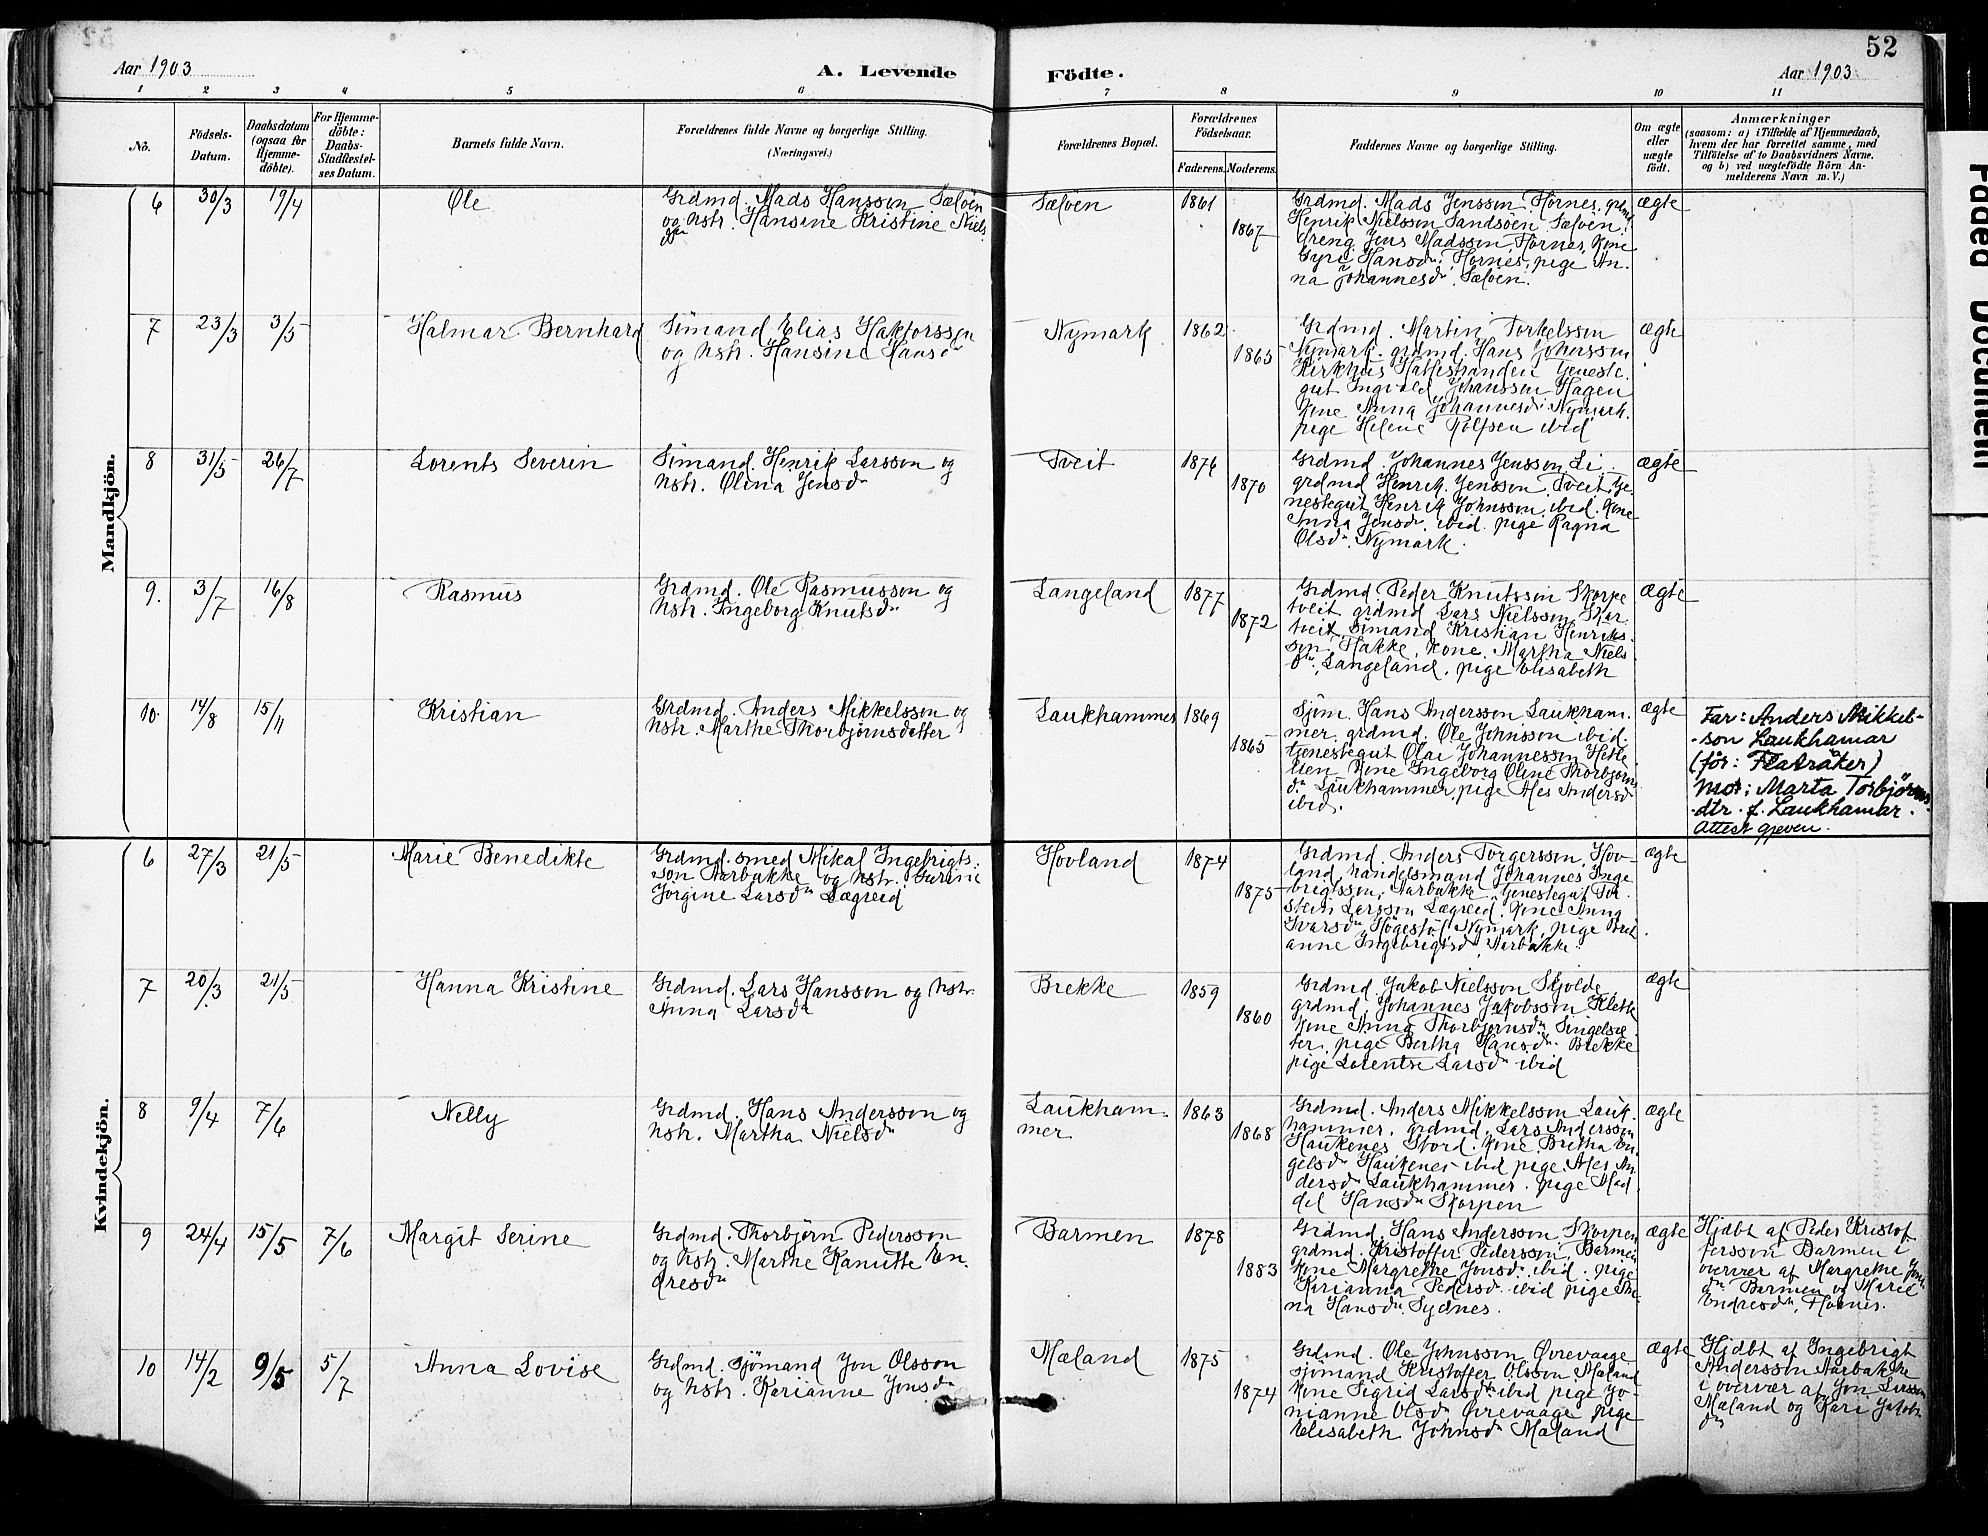 52
Aar 1903
A. Levende
Födte.
Aar 1903
1 2 3 4 5 6 7 8 9 10 11
No.
Födsels-
Datum.
Daabsdatum
(ogsaa for
Hjemme-
döbte).
For Hjemme-
döbte:
Daabs-
Stadfæstel-
ses Datum.
Barnets fulde Navn.
Forældrenes fulde Navne og borgerlige Stilling.
(Næringsvei.)
Forældrenes Bopæl.
Forældrenes
Födselsaar.
Faderens.
Moderens.
Faddernes Navne og borgerlige Stilling.
Om ægte
eller
uægte
født.
Anmærkninger
(saasom: a) i Tilfælde af Hjemmedaab,
hvem der har forrettet samme, med
Tilföielse af to Daabsvidners Navne,
og b) ved uægtefödte Börn An-
melderens Navn m. V.)
Mandkjön.
6
30/3
19/4
Ole
Grdmd. Mads Hansson Sæløen
og hstr. Hansine Kristine Niels
dtr
Sæløen
1861
1867
Grdmd. Mads Jensson Hornes, grdmd
Henrik Nielsson Sandsøen Sæløen,
dreng Jens Madsson, Hornes, kone
Gyri Hansdr. Hornes, pige An-
na Johannesdr. Sæløen.
ægte
7
23/3
3/5
Halmar Bernhard
Sömand Elias Haktorsson
og hstr. Hansine Hansdr
Nymark
1862
1865
Grdmd. Martin Torkelsson
Nymark. grdmd. Hans Johnsson
Kirkhus Halsestranden tjeneste
gut Ingvald Johansson Hagen
kone Anna Johannesdr. Nymark.
pige Helene Rolfsen ibid
ægte
8
31/5
26/7
Lorents Severin
Sömand. Henrik Larsson og
hstr. Olina Jensdr
Tveit
1876
1870
Grdmd. Johannes Jensson, Li
grdmd Henrik Jensson, Tveit, tje-
nestegut Henrik Johnsson, ibid. kone
Anna Jensdr. ibid. pige Ragna
Olsdr. Nymark.
ægte
9.
3/7
16/8
Rasmus
Grdmd. Ole Rasmusson og
hstr. Ingeborg Knutsdr
Langeland
1877
1872
Grdmd. Peder Knutsson Skorpe
tveit grdmd Lars Nielsson Skor
tveit sömand Kristian Henriks-
son, Hakke, kone. Martha Niels
dr. Langeland, pige Elisabeth
ægte
10.
14/8
15/11
Kristian
Grdmd. Anders Mikkelsson og
hstr. Marthe Thorbjørnsdatter
Laukhammer
1869
1865
Sjöm. Hans Andersson Laukham-
mer. grdmd. Ole Johnsson ibid.
tjenestegut Olai Johannesson Hetle
kone Ingeborg Oline Thorbjørns
dr. Laukhammer, pige Ales Andersdr
ibid.
ægte
Far: Anders Mikkel-
son Laukhamar
(før: Flatråker)
Mor: Marta Torbjörns
dtr. f. Laukhamar.
Attest gjeven.
Kvindekjön.
6
27/3
21/5
Marie Benedikte
Grdmd. smed Mikal Ingebrigts-
son Aarbakke og hstr. Gurine
Jorgine Larsdr Lægreid
Hovland
1874
1875
Grdmd. Anders Torgersson, Hov-
land, handelsmand Johannes Inge
brigtsson, Aarbakke. tjenestegut Tor
stein Larsson Lægreid, kone Anna
Ivarsdr Høgestøl, Nymark, pige
anne Ingebrigtsdr Aarbakke.
ægte
7
20/3
21/5
Hanna Kristine
Grdmd. Lars Hansson og hstr.
Anna Larsdr
Brekke
1859
1860
Grdmd. Jakob Nielsson Skjolde,
grdmd. Johannes Jakobsson Klette
kone Anna Thorbjørnsdr Singelsæ
ter, pige Bertha Hansdr Brekke
pige Lorentse Larsdr ibid
ægte
8
9/4
7/6
Nelly
Grdmd. Hans Andersson og
hstr. Martha Nielsdr
Laukham-
mer
1863
1868
Grdmd. Anders Mikkelsson Lauk-
hammer, grdmd. Lars Andersson
Haukenes Stord. kone Britha En-
gelsdr Haukenes ibid pige. Ales An-
dersdr Laukhammer. pige Mad
del Hansdr Skorpen
ægte
9
24/4
15/5
7/6
Margit Serine
Grdmd. Thorbjørn Pedersson
og hstr. Marthe Kanutte En-
dresdr
Barmen
1878
1883
Grdmd. Hans Andersson Skorpen
grdmd. Kristoffer Pedersson, Barmen
kone Margrethe Jonsdr. ibid. pige
Karianna Pedersdr ibid pige The
na Hansdr Sydnes.
ægte
Hjdbt af Peder Kristof
fersson Barmen i
overvær af Margrethe Jons
dr Barmen og Marie
Endresdr, Hornes.
10
14/2
9/5
5/7
Anna Lovise
Grdmd. sjömand Jon Olsson
og hstr. Karianne Jonsdr
Mæland
1875
1874
Grdmd. Ole Johnsson Øvrevaage
sjömand Kristoffer Olsson Mæland
kone Sigrid Larsdr ibid pige Jo-
nianne Olsdr Øvrevaage pige
Elisabeth Johnsdr Mæland
ægte
Hjdbt af Ingebrigt
Andersson Aarbakke
i overvær af Jon Larsson
Mæland og Kari Jakobs
dr
Faded Document